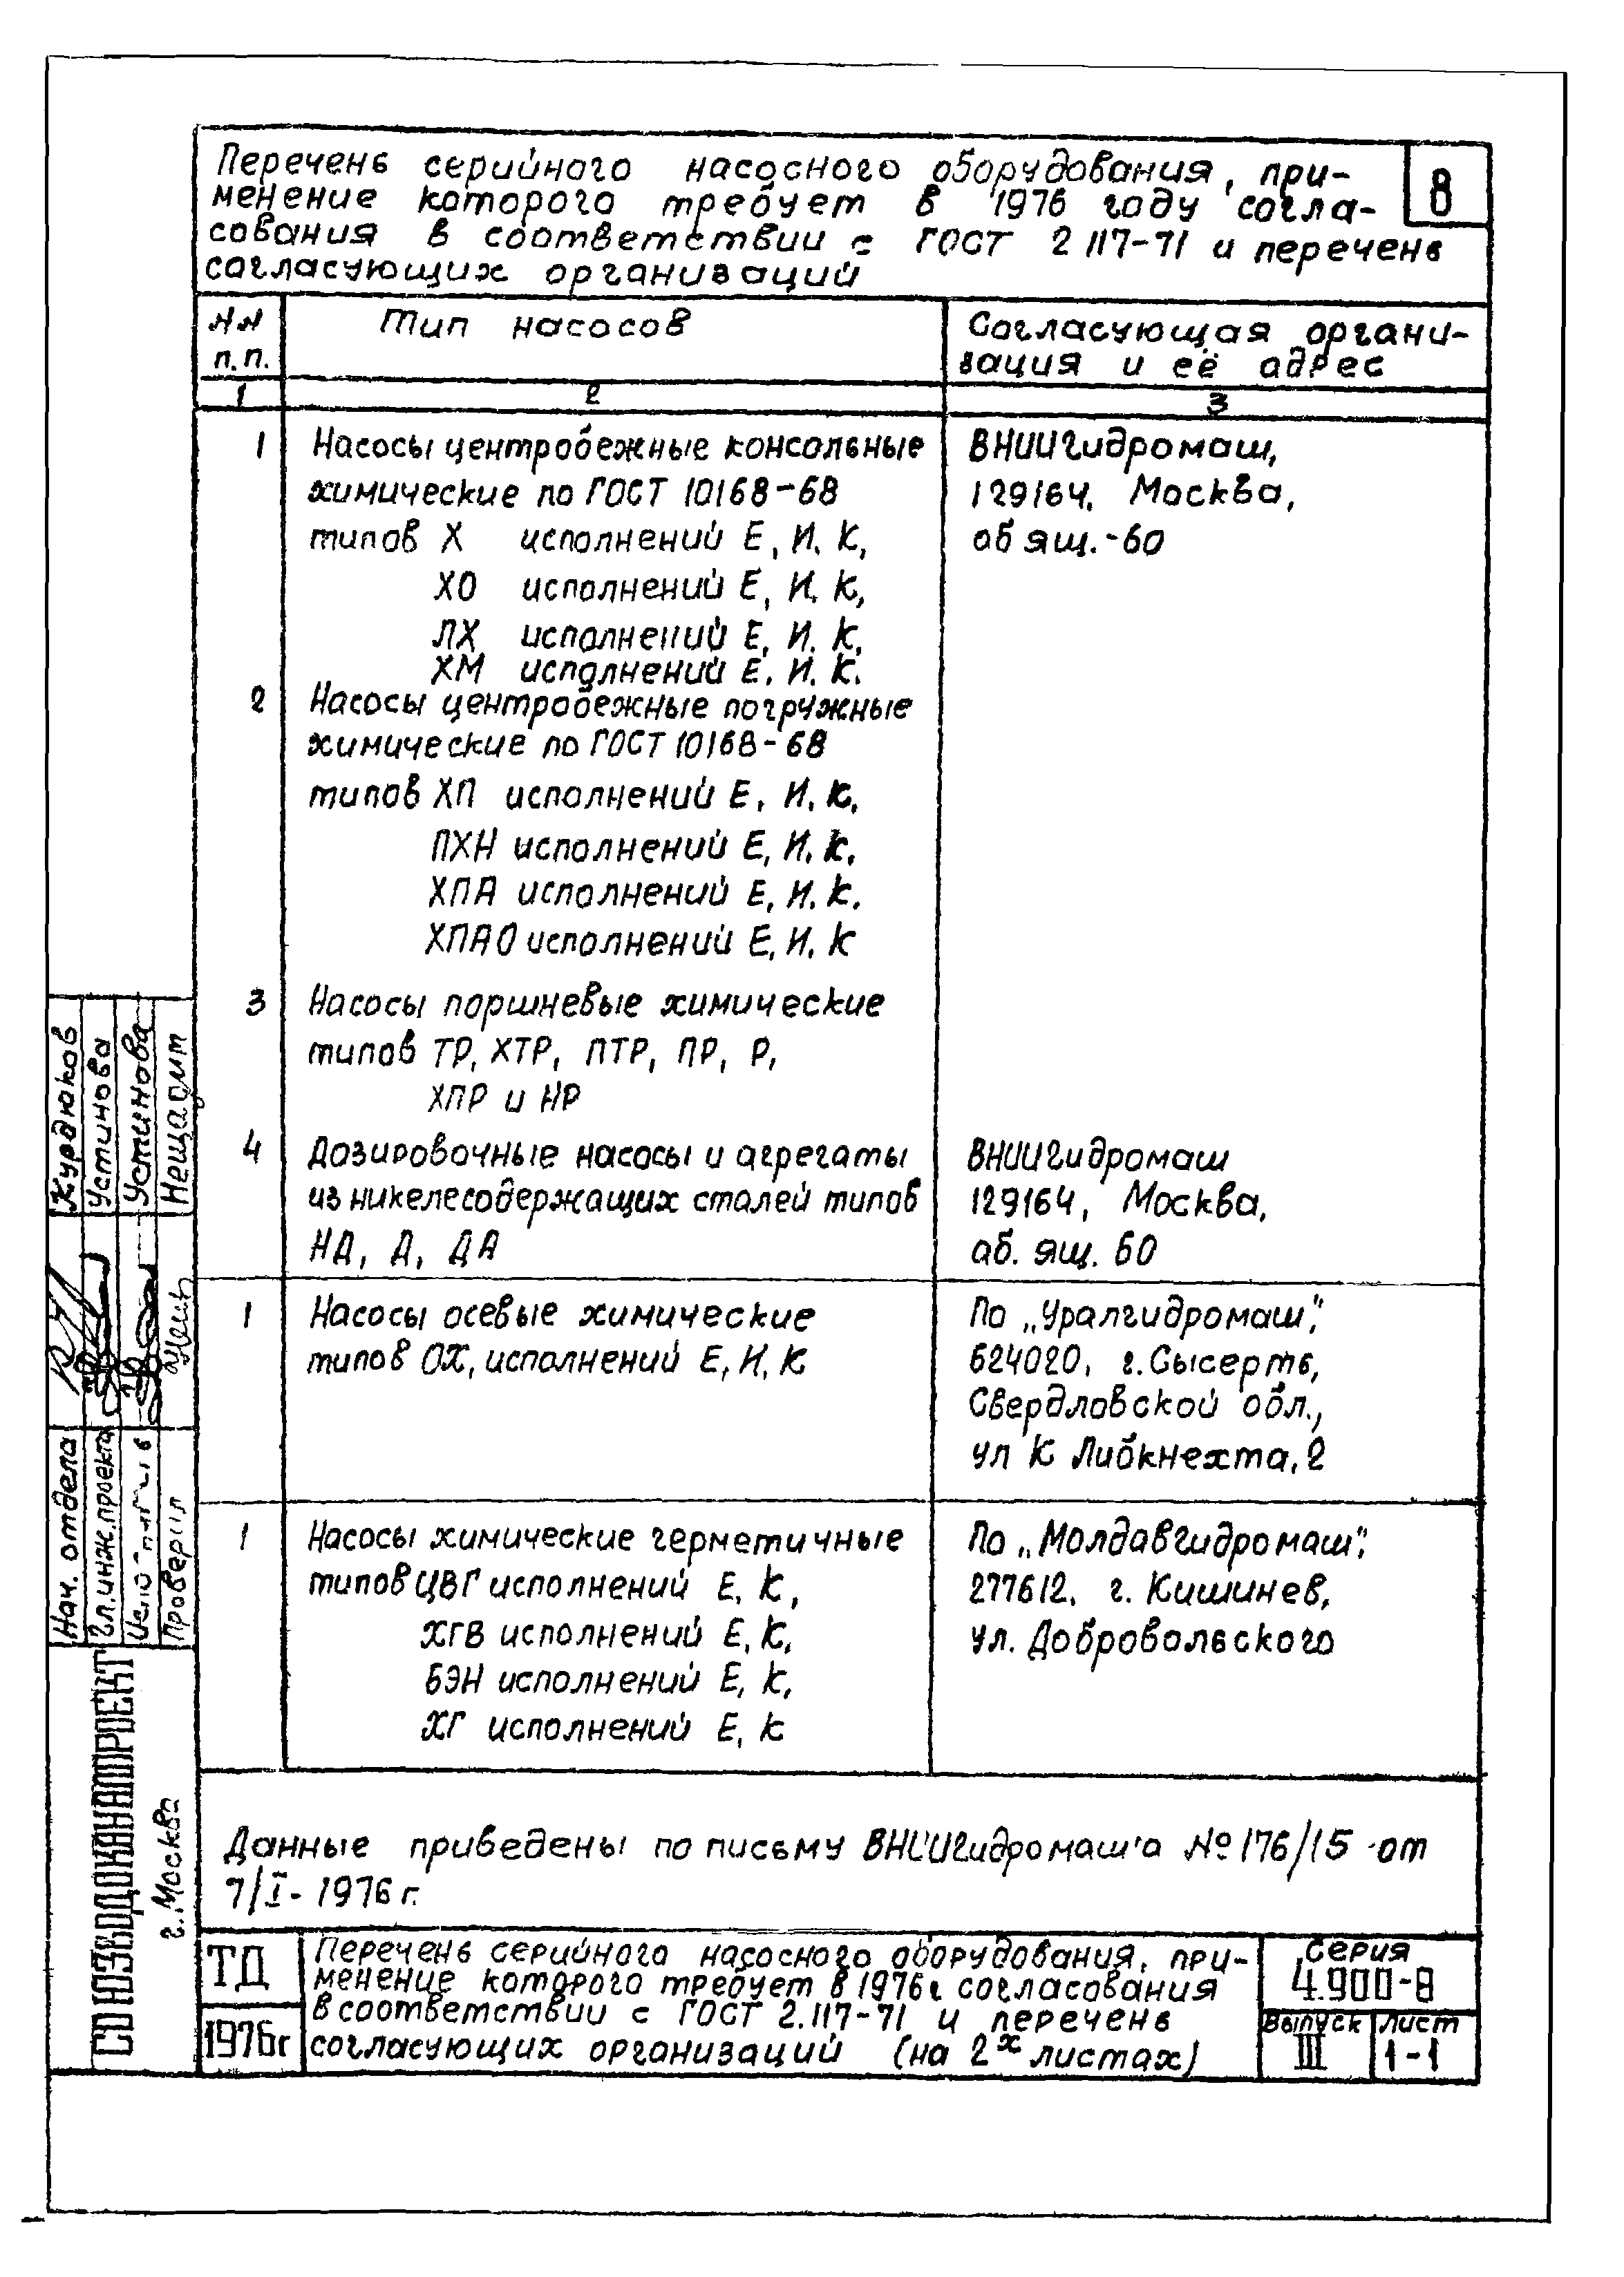 Перечень серийного насосного оборудования, при-
менение которого требует в 1976 году согла-
сования в соответствии с ГОСТ 2 117-71 и перечень
согласующих организаций
8
№№
п.п.
Тип насосов
Согласующая органи-
зация и её адрес
1
2
3
1
Насосы центробежные консольные
химические по ГОСТ 10168-68
типов Х исполнений Е, И, К,
ХО исполнений Е, И, К,
ЛХ исполнений Е, И, К,
ХМ исполнений Е, И, К.
ВНИИГидромаш,
129164, Москва,
аб ящ.-60
2
Насосы центробежные погружные
химические по ГОСТ 10168-68
типов ХП исполнений Е, И, К,
ПХН исполнений Е, И, К,
ХПА исполнений Е, И, К,
ХПАО исполнений Е, И, К
3
Насосы поршневые химические
типов ТР, ХТР, ПТР, ПР, Р,
ХПР и НР
4
Дозировочные насосы и агрегаты
из никелесодержащих сталей типов
НД, Д, ДА
ВНИИГидромаш
129164, Москва,
аб. ящ. 60
1
Насосы осевые химические
типов ОХ, исполнений Е, И, К
По „Уралгидромаш",
624020, г. Сысерть,
Свердловской обл.,
ул К Либкнехта, 2
1
Насосы химические герметичные
типов ЦВГ исполнений Е, К,
ХГВ исполнений Е, К,
БЭН исполнений Е, К,
ХГ исполнений Е, К
По „Молдавгидромаш",
277612, г. Кишинев,
ул. Добровольского
Данные приведены по письму ВНИИГидромаш'а № 176/15 от
7/I-1976 г.
ТД
1976г
Перечень серийного насосного оборудования, при-
менение которого требует в 1976г согласования
в соответствии с ГОСТ 2.117-71 и перечень
согласующих организаций (на 2х листах)
Серия
4.900-8
Выпуск
III
Лист
1-1
Нач. отдела
Курдюков
Гл. инж. проекта
Устинова
Устинова
Проверил
Нещадит
СОЮЗВОДОКАНАЛПРОЕКТ
г. Москва